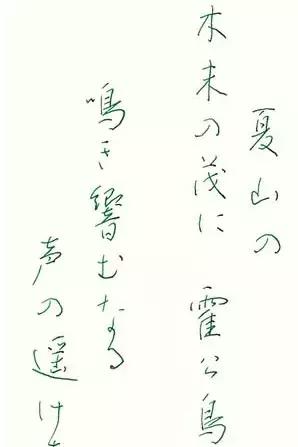 夏山の
木末の茂に 霍公鳥
鳴き響むなる
声の遥け